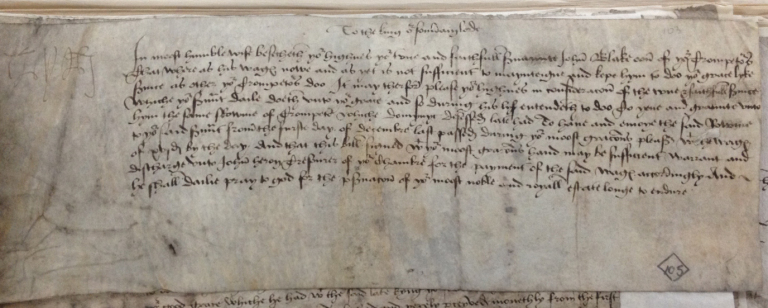 To the king or souaigne lorde
In most humble wise besecheth yor highnes yor true and faithfull sruaunt John Blake oon of yor Trompetts
That where as his wage nowe and as yet is not sufficient to mayntaigne and kepe hym to doo yor grace lyke
sruice as other yor trompetts doo It may therfor please yor highnes in consideracon of the true & faithfull sruice
whiche yor sruant daily doeth unto yor grace and so during his lif entendeth to doo to yeue and graunte unto
hym the same Rowme of Trompete whiche Domynyc decessed late had To haue and enioye the said Rowme
to yor said sruant from the first day of decembre last passed during yor moost gracious pleasr wt the wage
of xvjd by the day And that this bill signed wt yor moost gracious hand may be sufficient warant and
discharge unto John heron Tresourer of yor Chambre for the payment of the said wage accordingly And
he shall dailie pray to god for the preseruacon of yor moost noble and royall estate longe to endure
105
grace whiche he had the said late king
monethly from the first